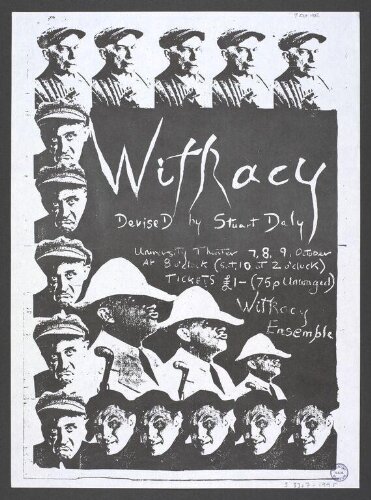 Witkacy
DeviseD by Stuart Daly
University Theater 7, 8, 9, October
At 8 o'clock (sat, 10 at 2 o'clock)
TICKETS £1— (75p Unwaged)
Witkacy
Ensemble